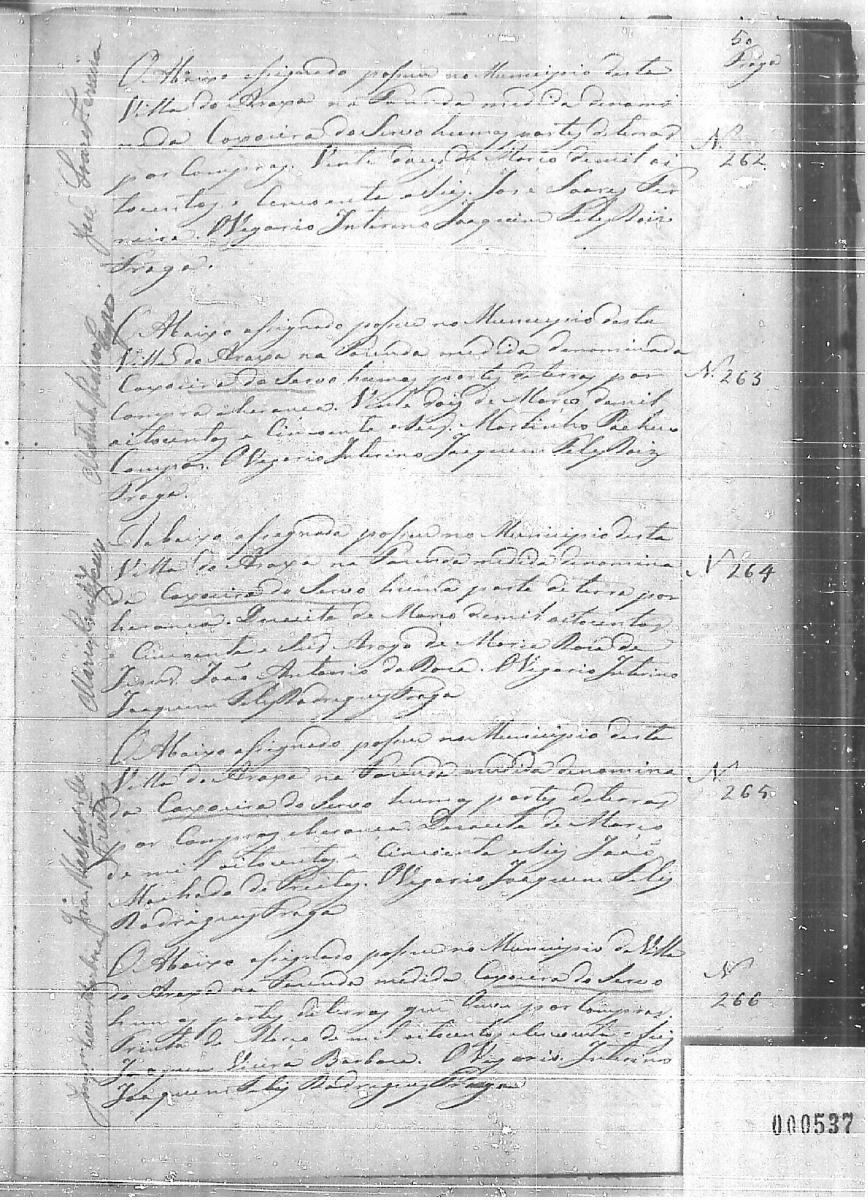 50
Fraga
O Abaixo assignado possue no Municipio desta
Villa do Araxa na Fazenda medida denomi
nada Caxoeira do Servo humas partes de terras
por Compras. Vinte dous de Março de mil oi
tocentos e Cincoenta e Seis. José Soares Fer
reira. O Vegario Interino Joaquim Felis Roiz
Fraga.
N. 262
José Soares Ferreira
O Abaixo assignado possue no Municipio desta
Villa do Araxa na Fazenda medida denominada
Caxoeira do Servo humas partes de terras por
Compra e herança. Vinte dois de Março de mil
oitocentos e Cincoenta e Seis. Martinho Pacheco
Campos. O Vegario Interino Joaquim Felis Roiz
Fraga.
N. 263
Campos
A abaixo assignada possue no Municipio desta
Villa do Araxa na Fazenda medida denomina
da Caxoeira do Servo huma parte de terra por
herança. Dezoito de Março de mil oitocentos
e Cincoenta e Seis. Arogo de Maria Rosa de
Jesus. João Antonio da Roza. O Vegario Interino
Joaquim Felis Rodrigues Fraga
N 264
Maria Roza de Jesus
O Abaixo assignado possue no Municipio desta
Villa do Araxa na Fazenda medida denomina
da Caxoeira do Servo humas partes de terras
por Compras e herança de Março
de mil oitocentos e Cincoenta e Seis João
Machado de Freitas. O Vegario Joaquim Felis
Rodrigues Fraga
N 265
João Machado de
Freitas
O Abaixo assignado possue no Municipio da Villa
do Araxa na Fazenda medida Caxoeira do Servo
humas partes de terras que ouve por Compras.
Trinta de Março de mil oitocentos e Cincoenta e Seis
Joaquim Vieira Barboza. O Vegario Interino
Joaquim Felis Rodrigues Fraga
N
266
000537